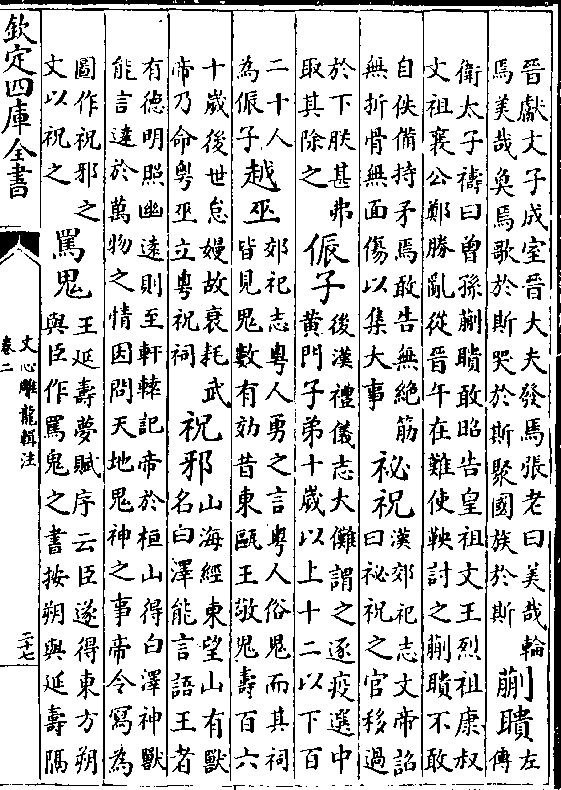 晉獻文子成室晉大夫發焉張老曰美哉輪
焉美哉奐焉歌於斯哭於斯聚國族於斯
蒯聵
左
傳
衛太子禱曰曾孫蒯聵敢昭告皇祖文王烈祖康叔
文祖襄公鄭勝亂從晉午在難使鞅討之蒯聵不敢
自佚備持矛焉敢告無絕筋
無折骨無面傷以集大事
祕祝
漢郊祀志文帝詔
曰祕祝之官移過
於下朕甚弗
取其除之
侲子
後漢禮儀志大儺謂之逐疫選中
黃門子弟十歲以上十二以下百
二十人
為侲子
越巫
郊祀志粵人勇之言粵人俗鬼而其祠
皆見鬼數有効昔東甌王敬鬼壽百六
十歲後世怠嫚故衰耗武
帝乃命粵巫立粵祝祠
祝邪
山海經東望山有獸
名白澤能言語王者
有德明照幽遠則至軒轅記帝於桓山得白澤神獸
能言達於萬物之情因問天地鬼神之事帝令寫為
圖作祝邪之
文以祝之
罵鬼
王延壽夢賦序云臣遂得東方朔
與臣作罵鬼之書按朔與延壽隔
欽定四庫全書
文心雕龍輯注
卷二
二十七